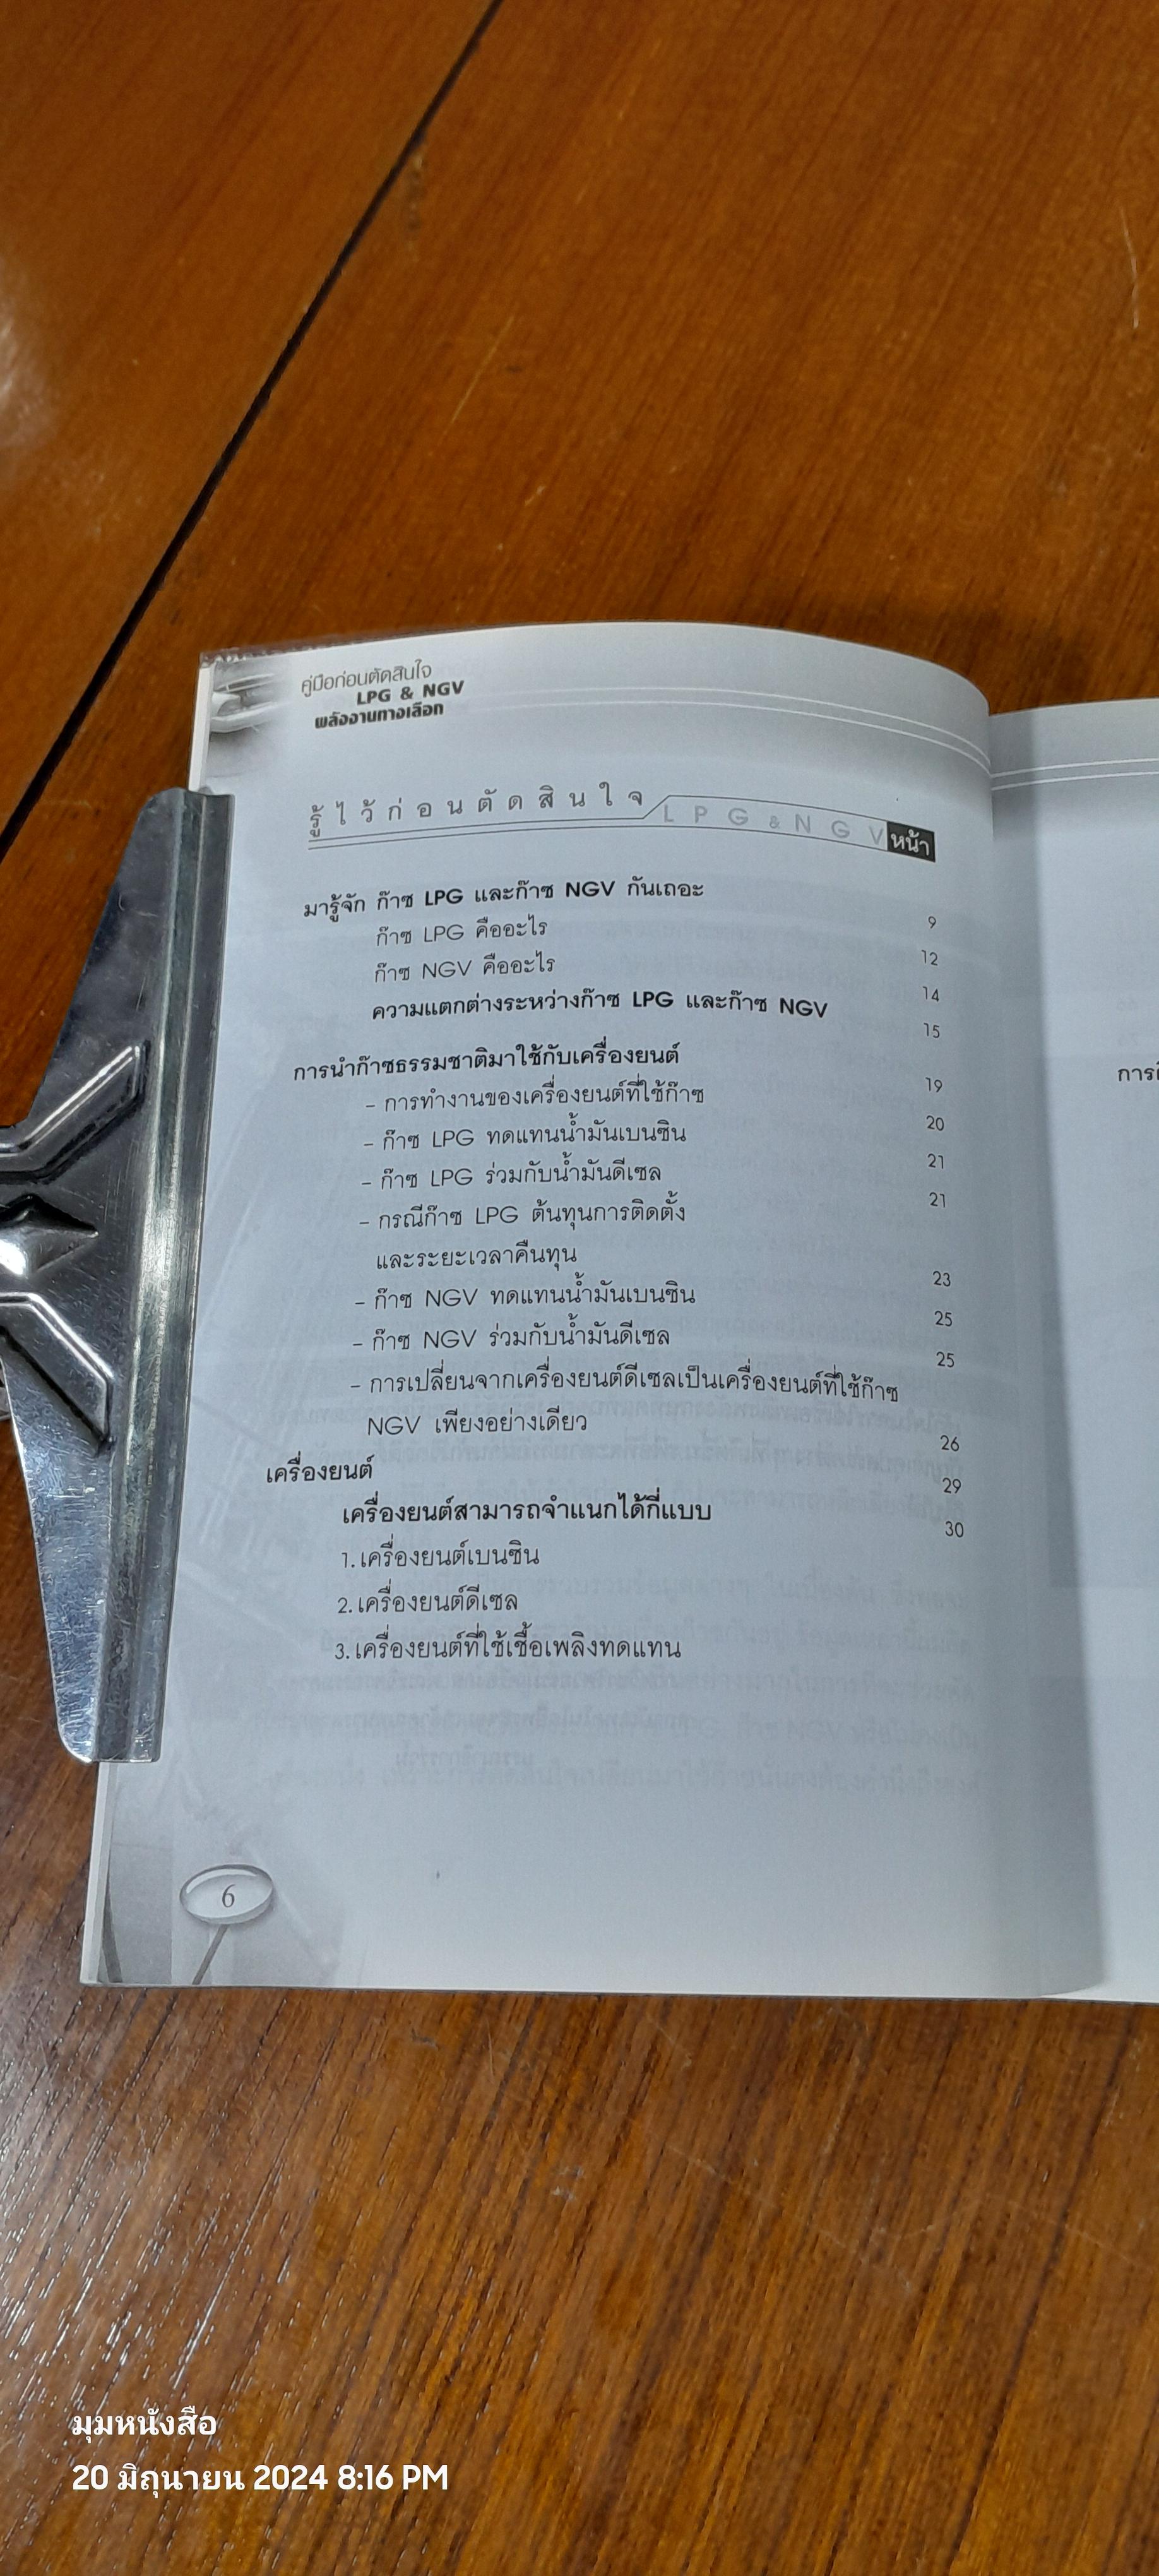 คู่มือก่อนตัดสินใจ
LPG & NGV
พลังงานทางเลือก
รู้ไว้ก่อนตัดสินใจ LPG & NGV หน้า
มารู้จัก ก๊าซ LPG และก๊าซ NGV กันเถอะ 9
ก๊าซ LPG คืออะไร 12
ก๊าซ NGV คืออะไร 14
ความแตกต่างระหว่างก๊าซ LPG และก๊าซ NGV 15
การนำก๊าซธรรมชาติมาใช้กับเครื่องยนต์ 19
- การทำงานของเครื่องยนต์ที่ใช้ก๊าซ 20
- ก๊าซ LPG ทดแทนน้ำมันเบนซิน 21
- ก๊าซ LPG ร่วมกับน้ำมันดีเซล 21
- กรณีก๊าซ LPG ต้นทุนการติดตั้ง
และระยะเวลาคืนทุน 23
- ก๊าซ NGV ทดแทนน้ำมันเบนซิน 25
- ก๊าซ NGV ร่วมกับน้ำมันดีเซล 25
- การเปลี่ยนจากเครื่องยนต์ดีเซลเป็นเครื่องยนต์ที่ใช้ก๊าซ
NGV เพียงอย่างเดียว 26
เครื่องยนต์ 29
เครื่องยนต์สามารถจำแนกได้กี่แบบ 30
1. เครื่องยนต์เบนซิน
2. เครื่องยนต์ดีเซล
3. เครื่องยนต์ที่ใช้เชื้อเพลิงทดแทน
6
มุมหนังสือ
20 มิถุนายน 2024 8:16 PM